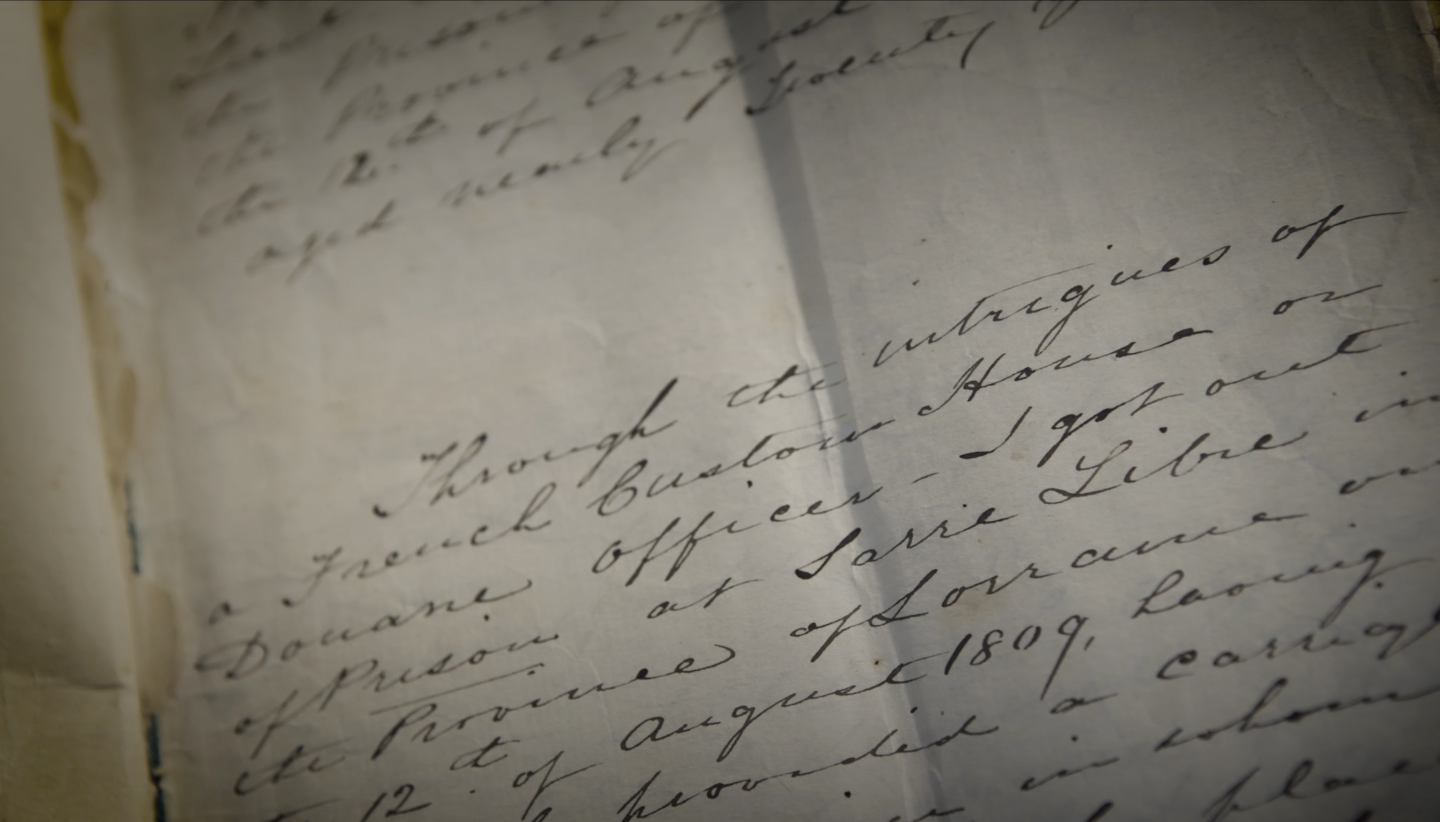 the Province of
the 12.th of August
aged nearly Twenty
Through the intrigues of
a French Custom House or
Douane officer - I got out
of Prison at Sarre Libre in
the Province of Lorraine on
12th of August 1809, having
provided a carriage
in whom